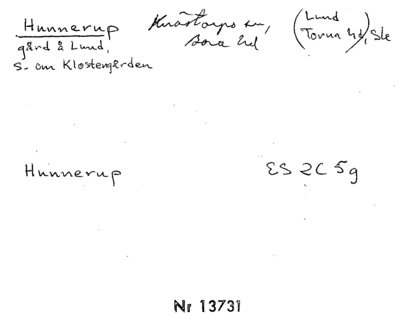 Hunnerup Knästorps sn, (Lund
gård å Lund, Bara hd Torna hd), Ske
S- om Klostergården
Hunnerup ES 2C 5g
Nr 13731